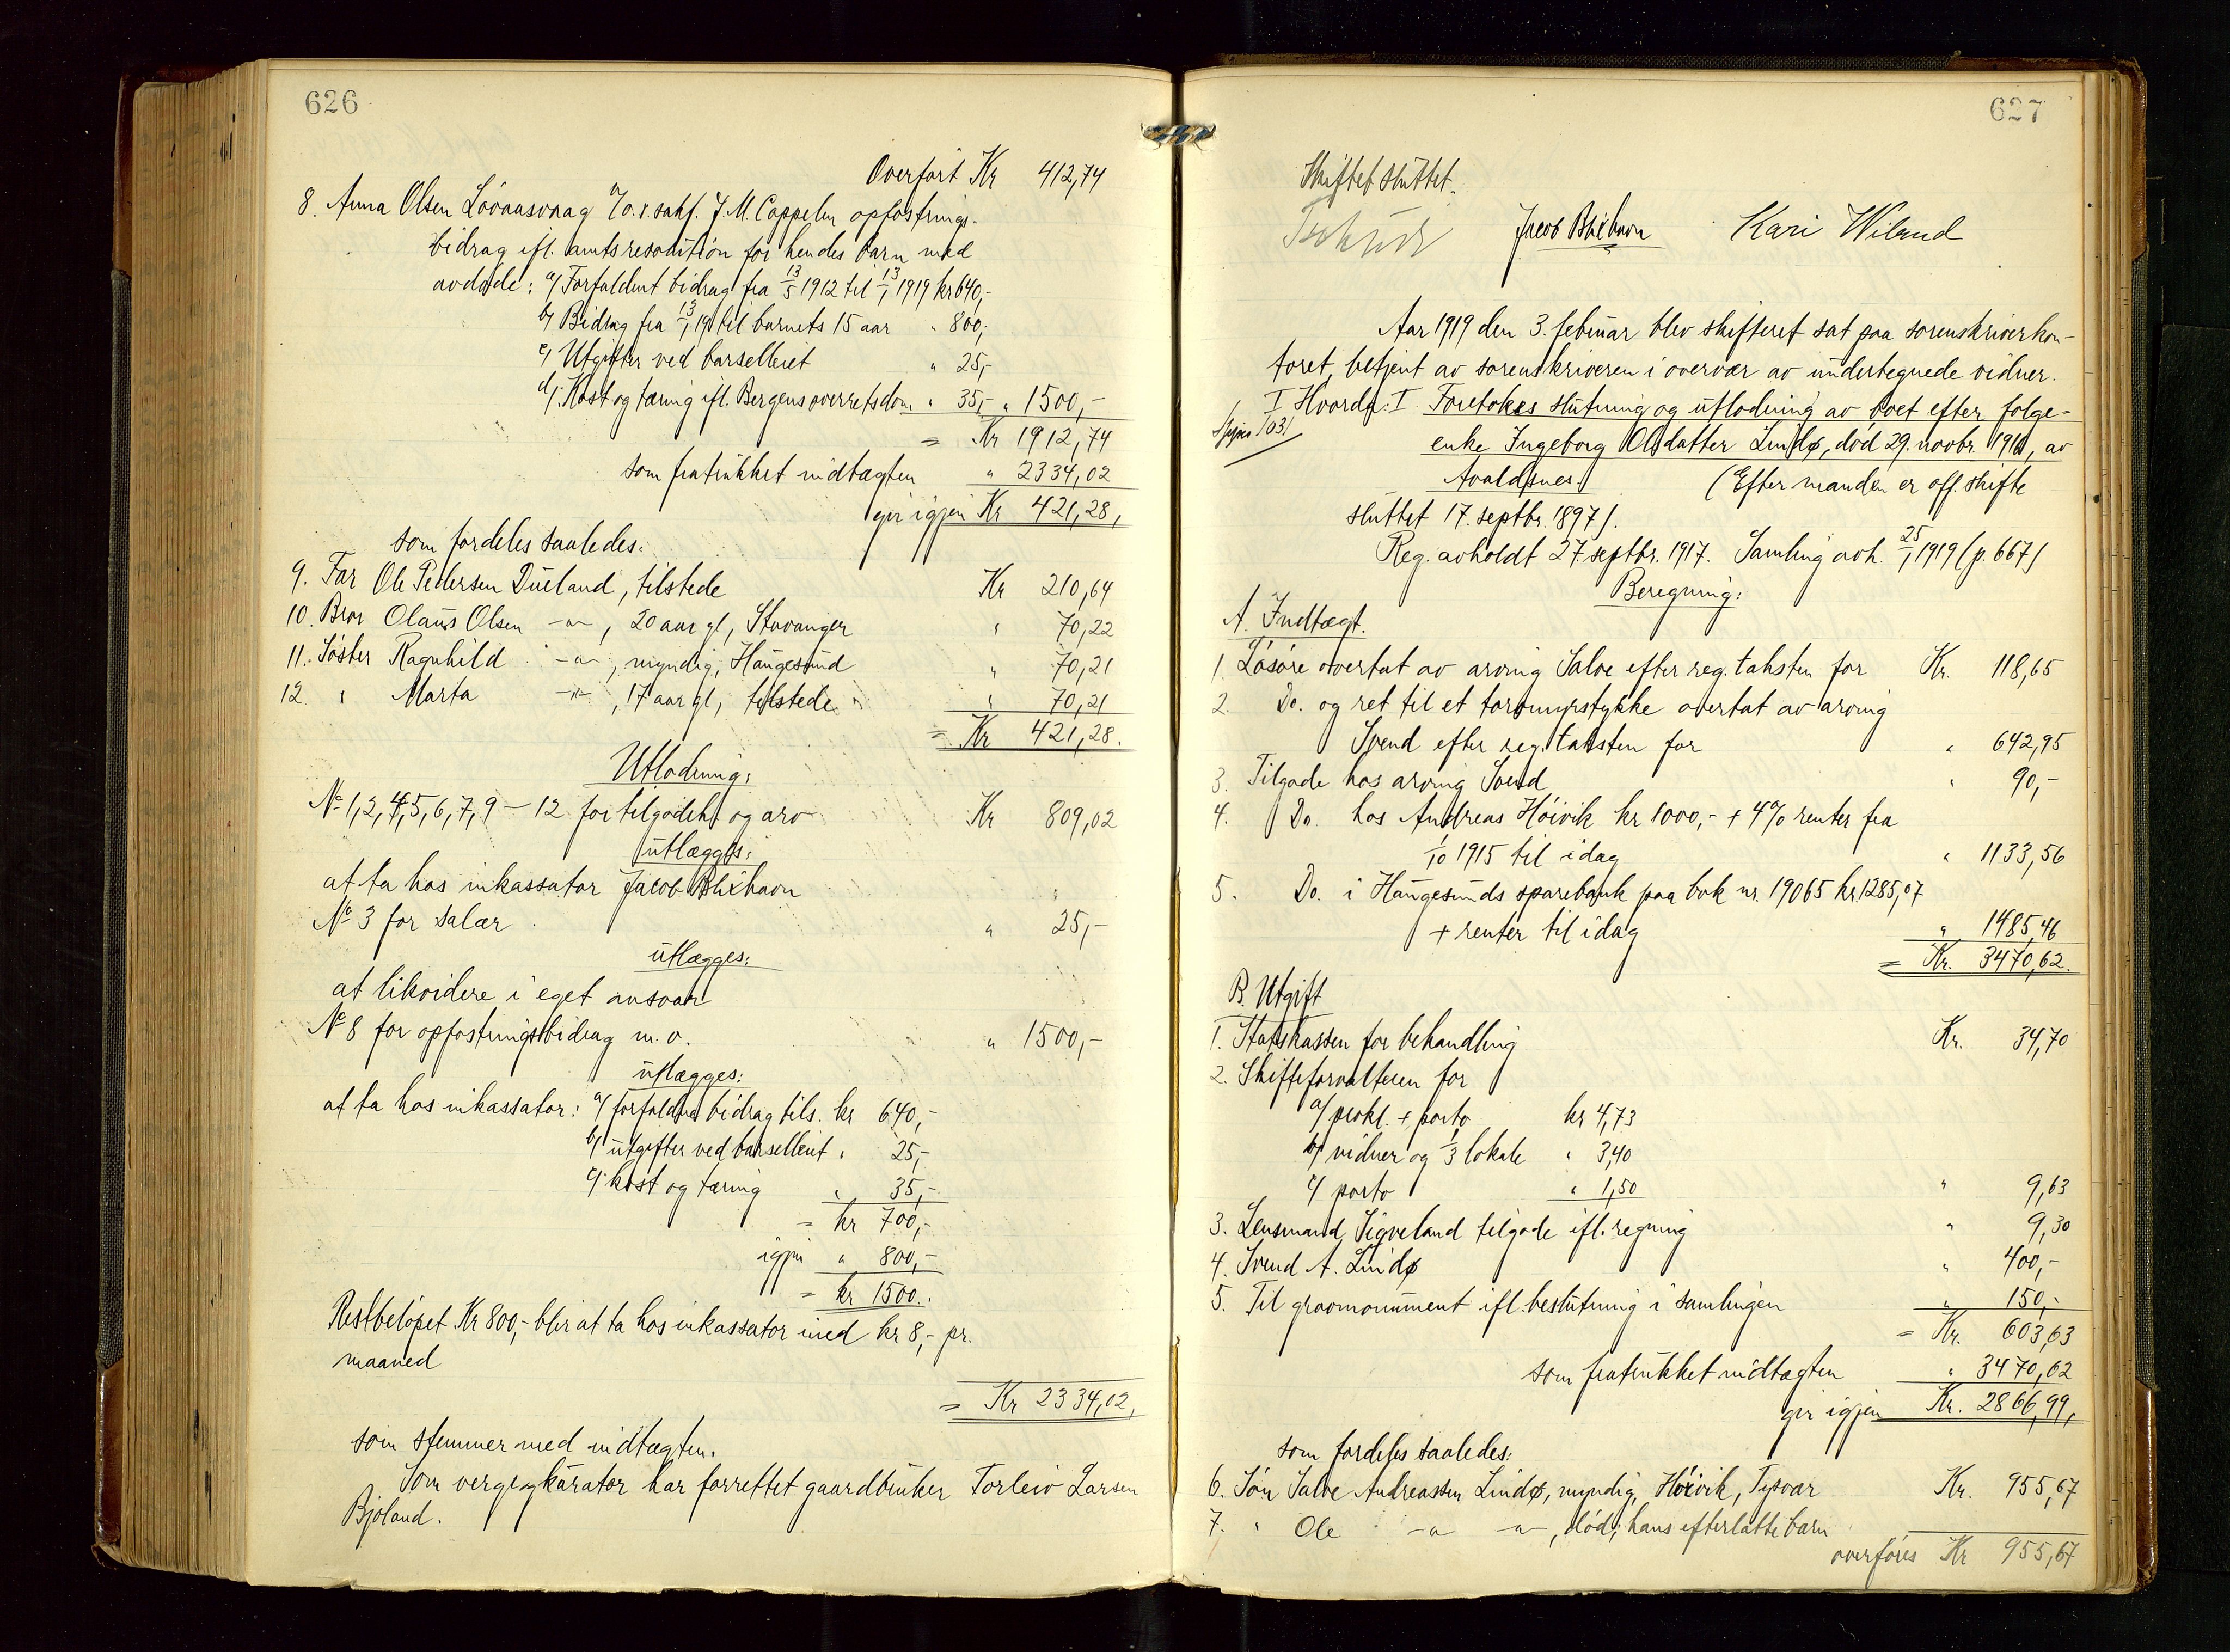 626
Overført Kr 412,74
8. Anna Olsen Lövaasvaag v/o.r.sakf. J. M. Cappelen opfostrings-
bidrag ifl. amtsresolution for hendes barn med
avdøde: a/ Forfaldent bidrag fra 13/5 1912 til 13/1 1919 kr 640,-
b/ Bidrag fra 13/1 19 til barnets 15 aar " 800,-
c/ Utgifter ved barselleiet " 25,-
d/ Kost og tæring ifl. Bergens overretsdom " 35,- " 1500,-
= Kr 1912,74
som fratrukket indtægten " 2334,02
gir igjen Kr 421,28,
som fordeles saaledes:
9. Far Ole Pedersen Dueland, tilstede Kr 210,64
10. Bror Olaus Olsen -"-, 20 aar gl, Stavanger " 70,22
11. Søster Ragnhild -"-, myndig, Haugesund " 70,21
12 " Marta -"-, 17 aar gl, tilstede " 70,21
= Kr 421,28.
Utlodning:
No 1,2,4,5,6,7,9 - 12 for tilgodeh. og arv Kr 809,02
utlægges:
at ta hos inkassator Jacob Blixhavn
No 3 for salær " 25,-
utlægges:
at likvidere i eget ansvar
No 8 for opfostringsbidrag m.v. " 1500,-
utlægges:
at ta hos inkassator: a/ forfaldne bidrag tils. kr 640,-
b/ utgifter ved barselleiet " 25,-
c/ kost og tæring " 35,-
= kr 700,-
igjen " 800,-
= kr 1500.
Restbeløpet Kr 800,- blir at ta hos inkassator med kr 8,- pr.
maaned
= Kr 2334,02,
som stemmer med indtægten.
Som verge og kurator har forrettet gaardbruker Torleiv Larsen
Bjoland.
627
Skiftet sluttet.
Jacob Blixhavn Kari Wiland
Aar 1919 den 3. februar blev skifteret sat paa sorenskriverkon-
toret, betjent av sorenskriveren i overvær av undertegnede vidner.
I Hvorda: I Foretokes slutning og utlodning av boet efter følge-
enke Ingeborg Olsdatter Lindø, död 29. novbr. 1911, av
Avaldsnes. (Efter manden er off. skifte
sluttet 17. septbr. 1897).
Reg. avholdt 27. septbr. 1917. Samling avh. 25/1 1919 (p. 667)
Beregning:
A. Indtægt.
1. Løsøre overtat av arving Salve efter reg. taksten for Kr. 118,65
2. Do. og ret til et torvmyrstykke overtat av arving
Svend efter reg. taksten for " 642,95
3. Tilgode hos arving Svend " 90,-
4. Do. hos Andreas Höivik kr 1000,- + 4% renter fra
1/10 1915 til idag " 1133,56
5. Do. i Haugesunds sparebank paa bok nr. 19065 kr. 1285,07
+ renter til idag " 1485,46
= Kr. 3470,62.
B. Utgift
1. Statskassen for behandling Kr. 34,70
2. Skifteforvalteren for
a/ prokl. + porto kr 4,73
b/ vidner og 1/3 lokale " 3,40
c/ porto " 1,50 " 9,63
3. Lensmand Sigveland tilgode ifl. regning " 9,30
4. Svend A. Lindø " 400,-
5. Til gravmonument ifl. beslutning i samlingen " 150,-
= Kr. 603,63
som fratrukket indtægten " 3470,62
gir igjen Kr. 2866,99,
som fordeles saaledes:
6. Sön Salve Andreassen Lindø, myndig, Höivik, Tysvær Kr. 955,67
7. " Ole -"- -"-, död; hans efterlatte barn
overføres Kr 955,67